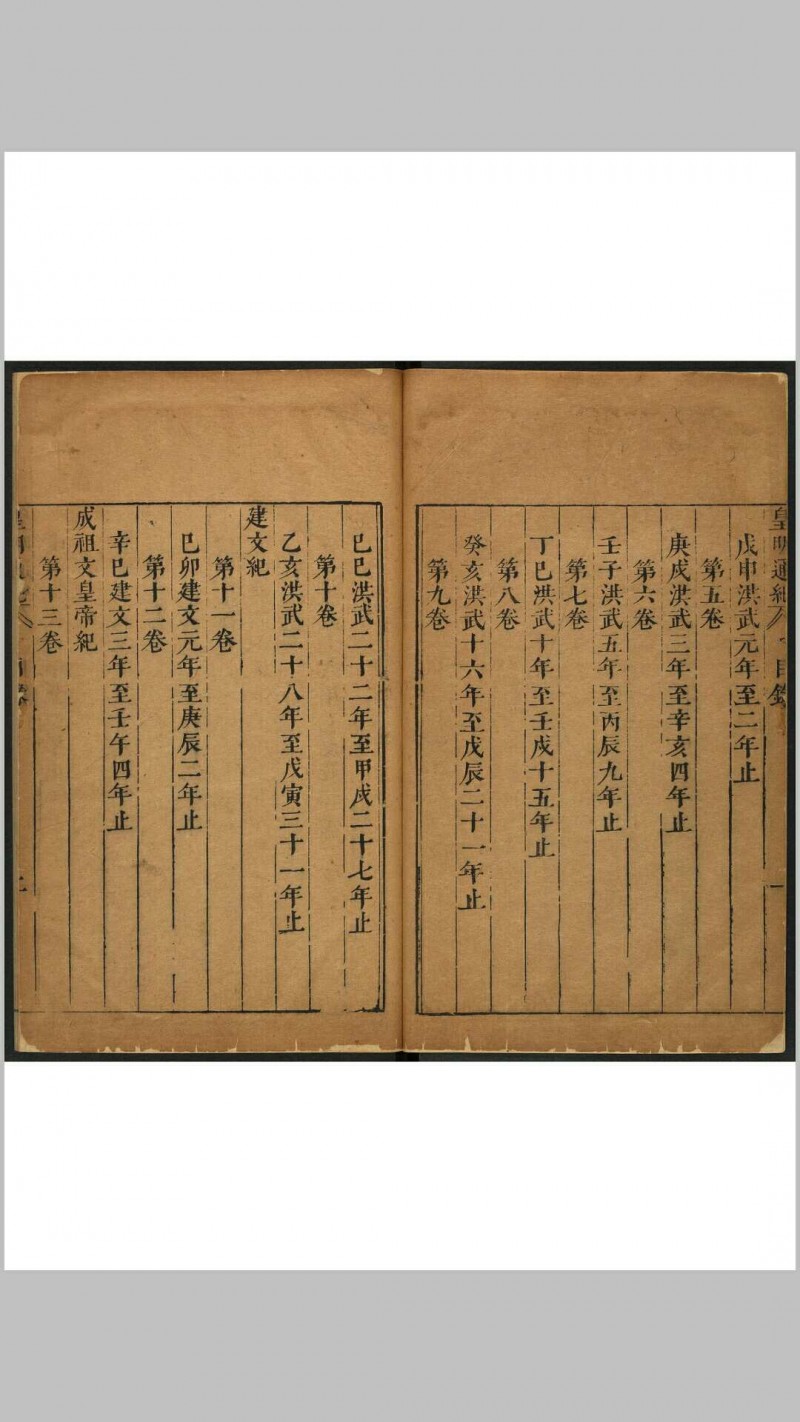 皇明通紀 目錄 一
戊申洪武元年至二年止
第五卷
庚戌洪武三年至辛亥四年止
第六卷
壬子洪武五年至丙辰九年止
第七卷
丁巳洪武十年至壬戌十五年止
第八卷
癸亥洪武十六年至戊辰二十一年止
第九卷
己巳洪武二十二年至甲戌二十七年止
第十卷
乙亥洪武二十八年至戊寅三十一年止
建文紀
第十一卷
己卯建文元年至庚辰二年止
第十二卷
辛巳建文三年至壬午四年止
成祖文皇帝紀
第十三卷